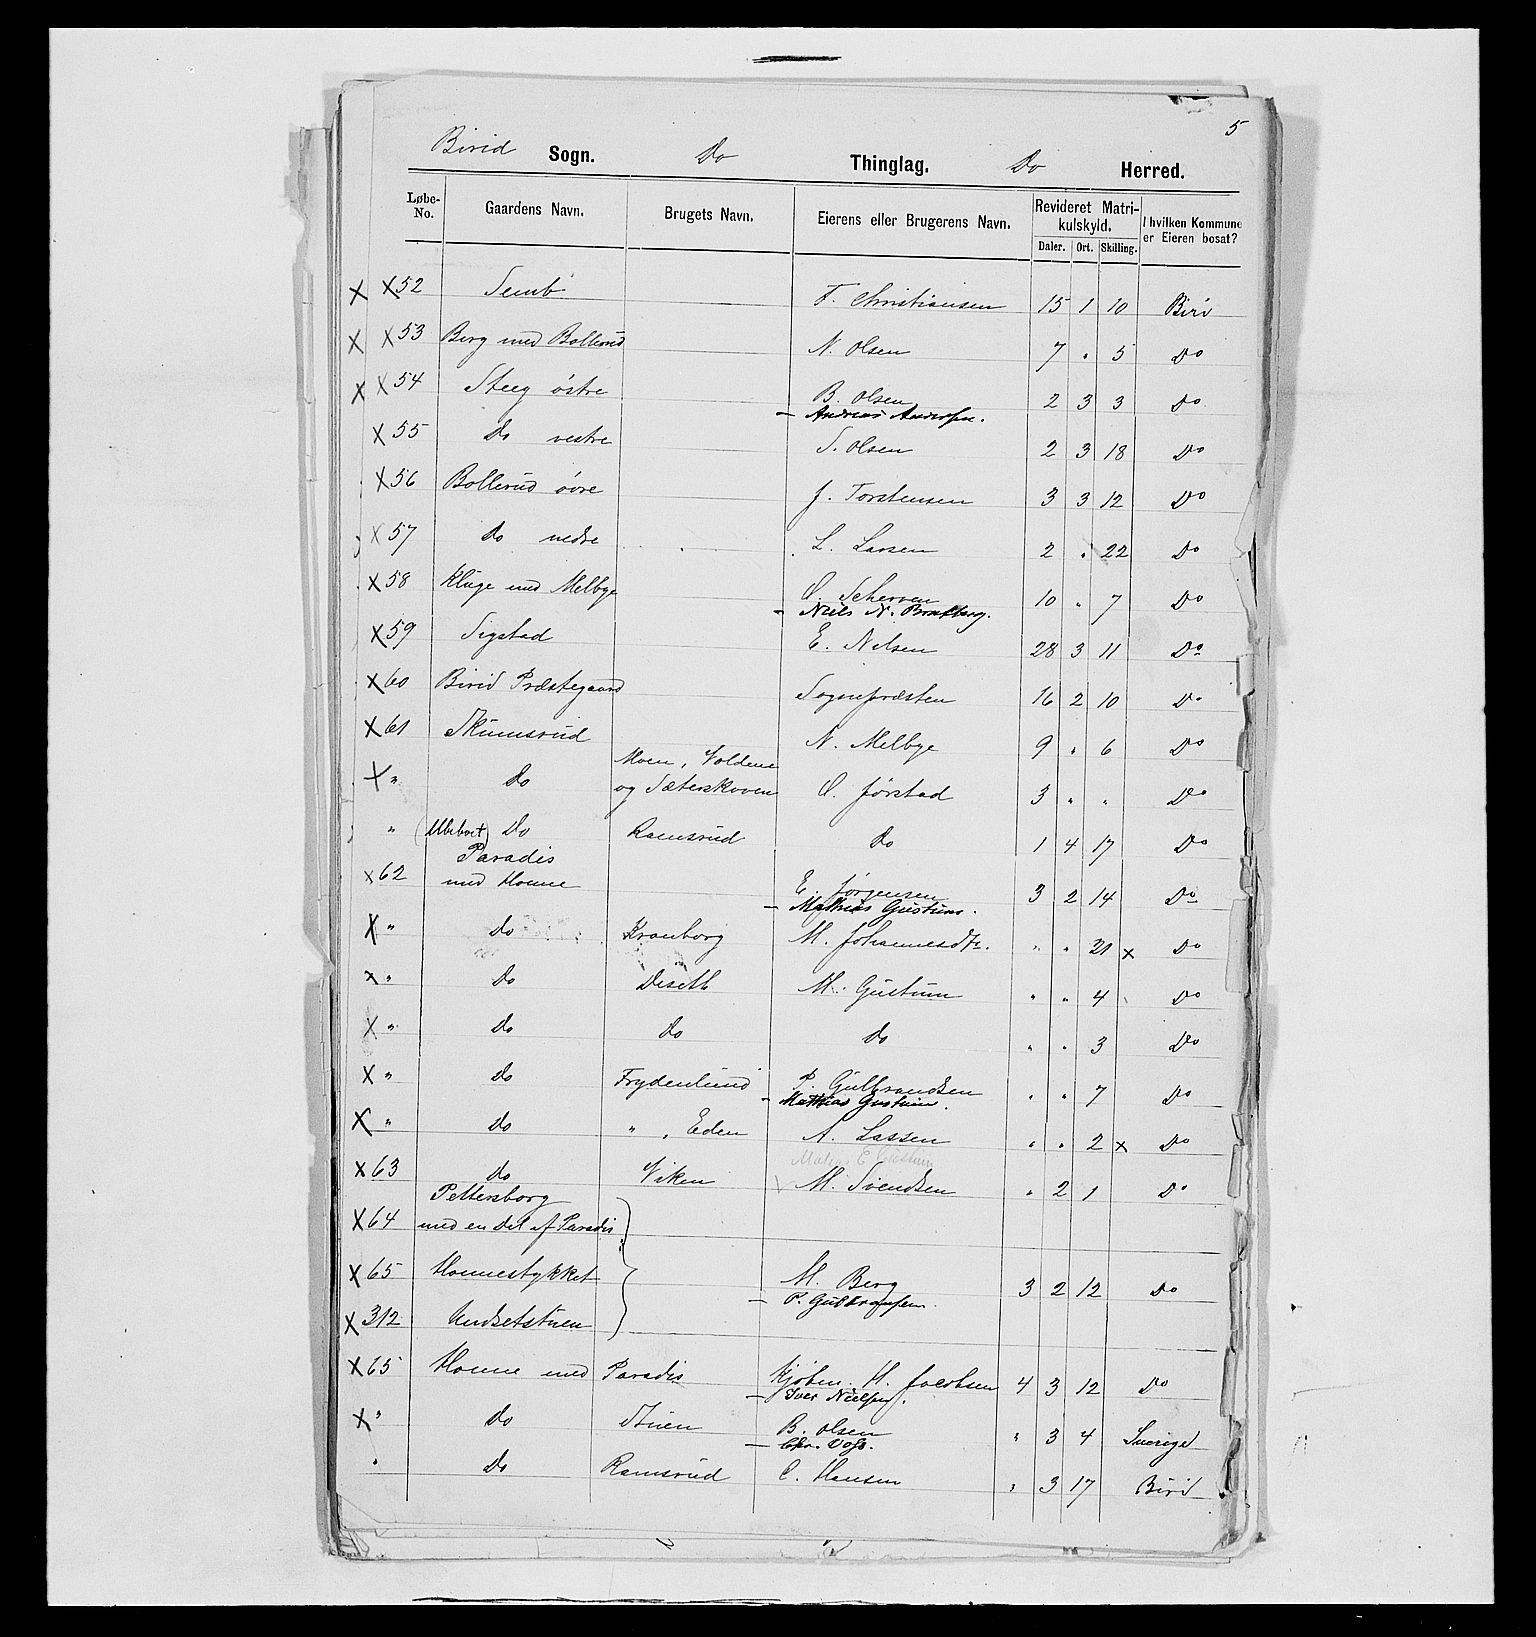 5
Birid Sogn. Do Thinglag. Do Herred.
Løbe-No. Gaardens Navn. Brugets Navn. Eierens eller Brugerens Navn. Revideret Matrikulskyld. Daler. Ort. Skilling. I hvilken Kommune er Eieren bosat?
X X 52 Semb F. Christiansen 15 1 10 Biri
X X 53 Berg med Bollerud N. Olsen 7 " 5 Do
X X 54 Steeg østre B. Olsen 2 3 3 Do
— Andreas Andersen.
X 55 Do vestre S. Olsen 2 3 18 Do
X 56 Bollerud øvre J. Torstensen 3 3 12 Do
X 57 Do nedre L. Larsen 2 " 22 Do
X 58 Kluge med Melbye O. 10 " 7 Do
— Niels N.
X 59 Sigstad E. Nilsen 28 3 11 Do
X 60 Birid Præstegaard Sognepræsten 16 2 10 Do
X 61 Skumsrud N. Melbye 9 " 6 Do
Moen, Voldene
X " Do og Sæterskoven O. Jørstad 3 " " Do
" (Ubeboet) Do Ramsrud Do 1 4 17 Do
Paradis
X 62 med Honne E. Jørgensen 3 2 14 Do
— Mathias Gustum.
X " Do Kronborg M. Johannesdtr. " " 21 X Do
X " Do Diseth M. Gustum " " 4 Do
X " Do Do Do " " 3 Do
X " Do Frydenlund P. Gulbrandsen " " 7 Do
— Mathias Gustum.
X " Do " , Eden A. Lassen " " 2 X Do
E Gustum
X 63 Do Viken M. Svendsen " 2 1 Do
Pettersborg
X 64 med en Del af Paradis
X 65 Honnestykket M. Berg 3 2 12 Do
— P. Gulbransen.
X 312 Undsetstuen
X 65 Honne med Paradis Kjøbm. H. Jacobsen 4 3 12 Do
— Iver Nielsen.
X " Do Stuen B. Olsen " 3 4 Sverige
— Chr. Voss.
" Do Ramsrud C. Hansen " 3 17 Biri